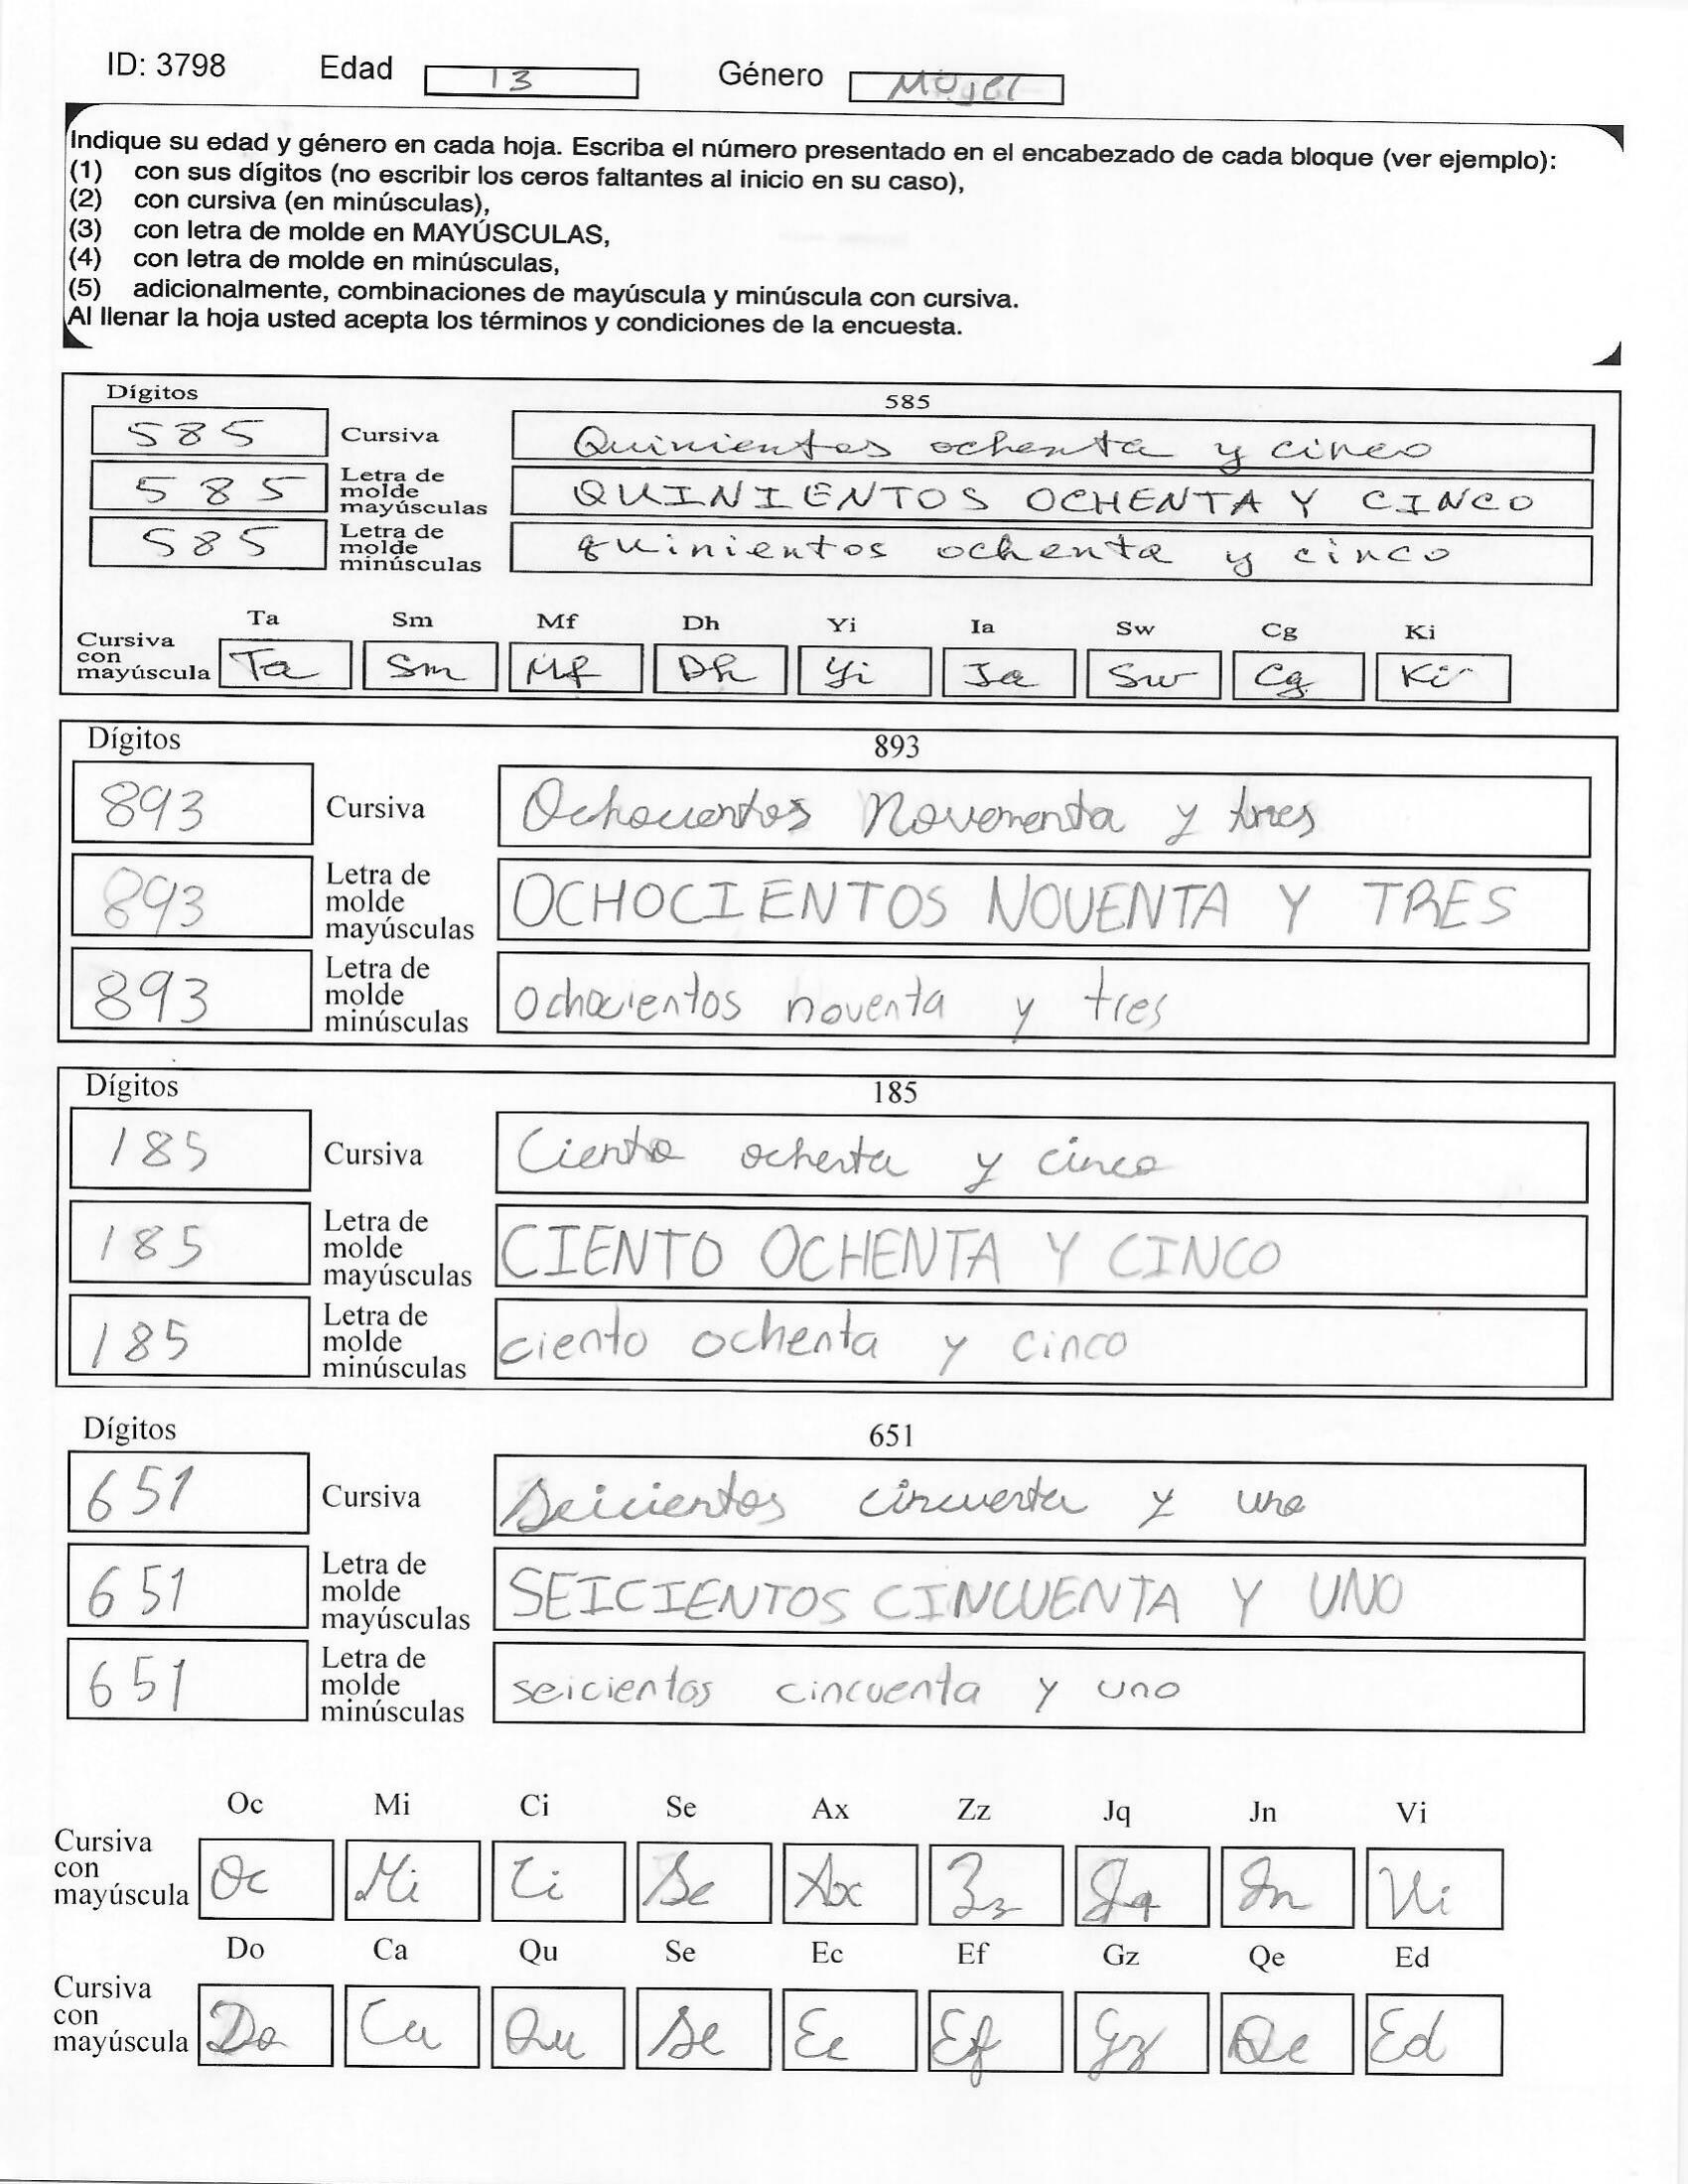 ID: 3798 Edad 13 Género Mujer
Indique su edad y género en cada hoja. Escriba el número presentado en el encabezado de cada bloque (ver ejemplo):
(1) con sus dígitos (no escribir los ceros faltantes al inicio en su caso),
(2) con cursiva (en minúsculas),
(3) con letra de molde en MAYÚSCULAS,
(4) con letra de molde en minúsculas,
(5) adicionalmente, combinaciones de mayúscula y minúscula con cursiva.
Al llenar la hoja usted acepta los términos y condiciones de la encuesta.
Dígitos 585
585 Cursiva Quinientos ochenta y cinco
585 Letra de molde mayúsculas QUINIENTOS OCHENTA Y CINCO
585 Letra de molde minúsculas quinientos ochenta y cinco
Ta Sm Mf Dh Yi Ia Sw Cg Ki
Cursiva con mayúscula Ta Sm Mf Dh Yi Ia Sw Cg Ki
Dígitos 893
893 Cursiva Ochocientos Novenenta y tres
893 Letra de molde mayúsculas OCHOCIENTOS NOVENTA Y TRES
893 Letra de molde minúsculas ochocientos noventa y tres
Dígitos 185
185 Cursiva Ciento ochenta y cinco
185 Letra de molde mayúsculas CIENTO OCHENTA Y CINCO
185 Letra de molde minúsculas ciento ochenta y cinco
Dígitos 651
651 Cursiva Seicientos cincuenta y uno
651 Letra de molde mayúsculas SEICIENTOS CINCUENTA Y UNO
651 Letra de molde minúsculas seicientos cincuenta y uno
Oc Mi Ci Se Ax Zz Jq Jn Vi
Cursiva con mayúscula Oc Mi Ci Se Ax Zz Jq Jn Vi
Do Ca Qu Se Ec Ef Gz Qe Ed
Cursiva con mayúscula Do Ca Qu Se Ec Ef Gz Qe Ed